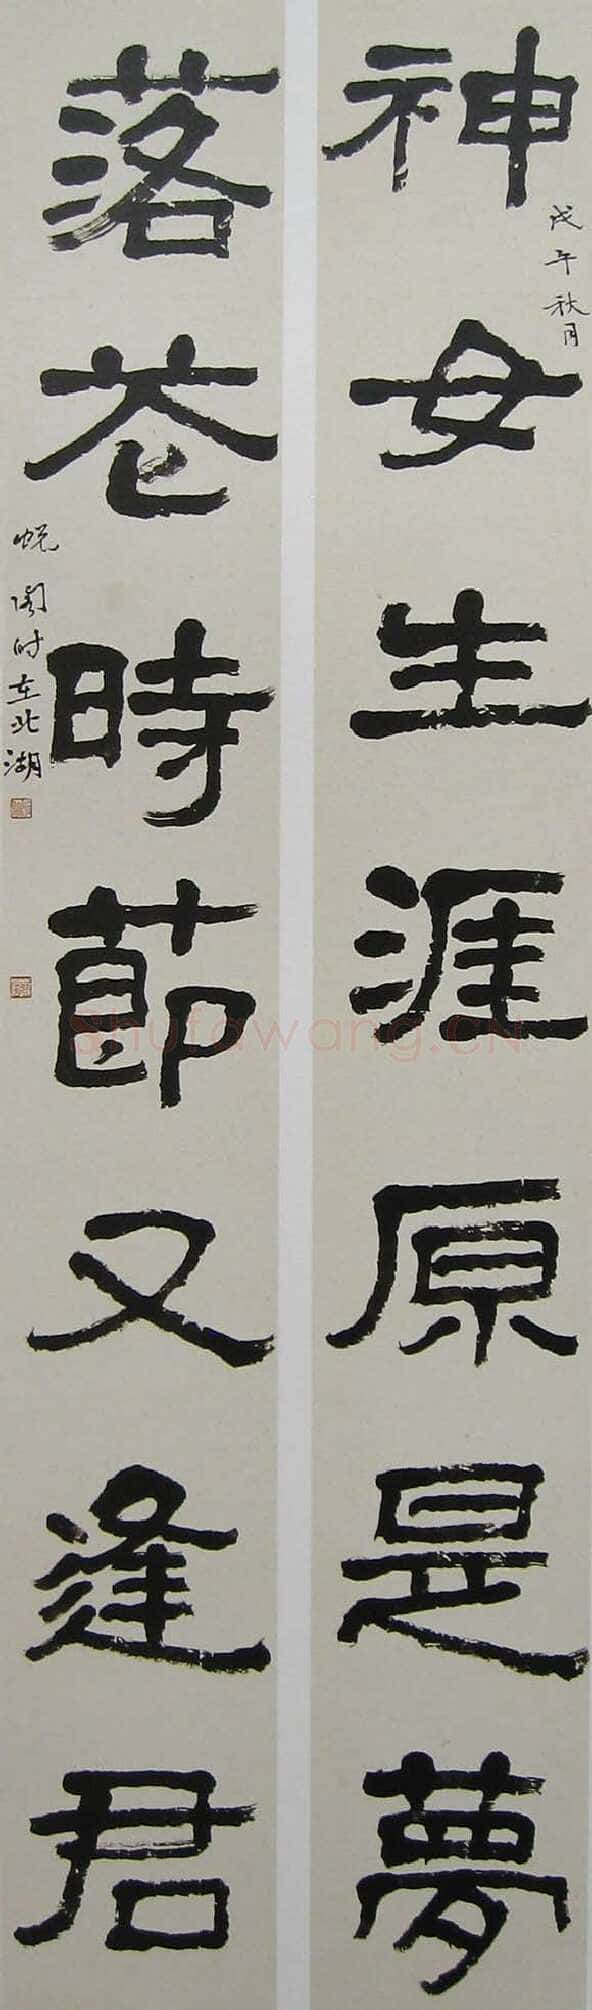 神女生涯原是夢
戊午秋月
落花時節又逢君
蜕阁时在北湖
Shufawang.CN